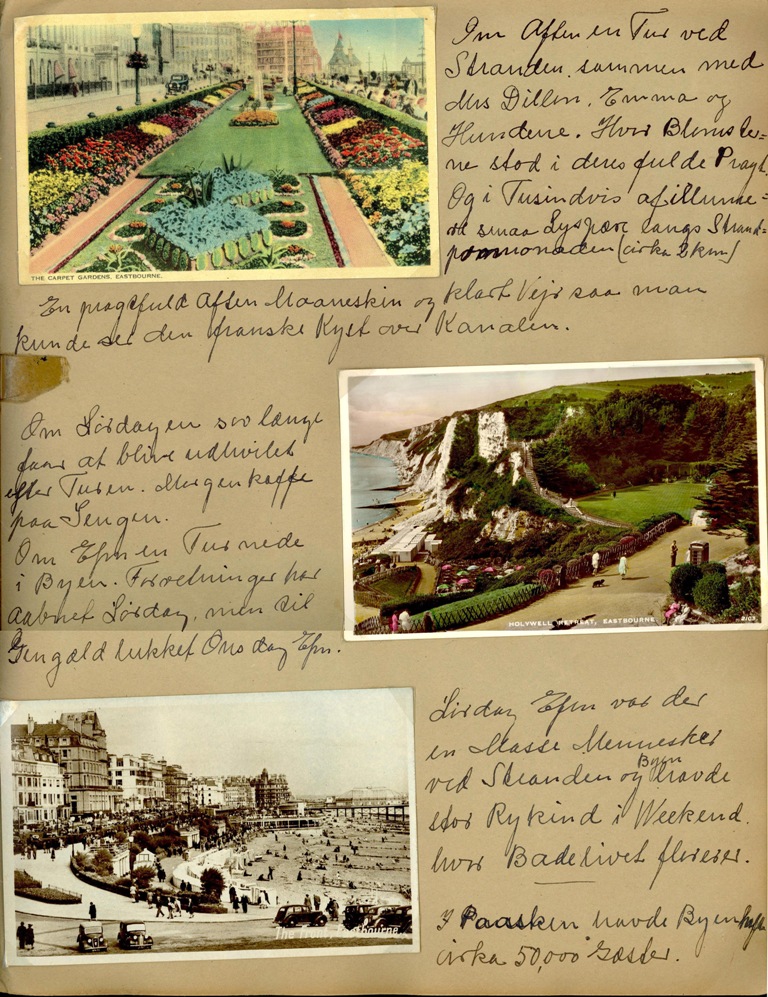 Om Aften en Tur ved
Stranden. sammen med
Mrs Dillon, Emma og
Hundene. Hvor Blomster=
ne stod i deres fulde Pragt.
Og i Tusindvis af illumine=
rede smaa Lyspære langs Strand=
promonaden (cirka 2 km)
THE CARPET GARDENS, EASTBOURNE.
En pragtfuld Aften Maaneskin og klart Vejr saa man
kunde se den franske Kyst over Kanalen.
Om Lørdagen sov længe
for at blive udhvilet
efter Turen. Morgenkaffe
paa Sengen.
Om Efm en Tur nede
i Byen. Forretninger har
aabnet Lørdag, men til
Gengæld lukket Onsdag Efm.
HOLYWELL RETREAT, EASTBOURNE.
Lørdag Efm var der
en Masse Mennesker
ved Stranden og Byen havde
stor Rykind i Weekend.
hvor Badelivet florerer.
I Paasken havde Byen
cirka 50,000 Gæster.
The Front, Eastbourne.